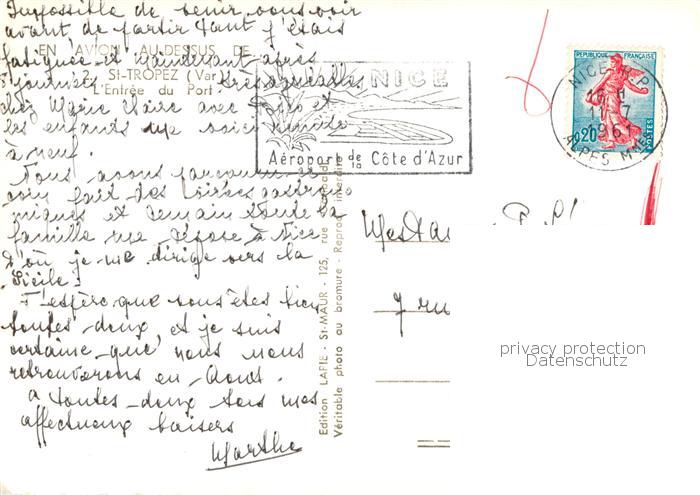 Impossible de venir vous voir
avant de partir tant j'étais
fatiguée et maintenant après
EN AVION AU-DESSUS DE
2. ST-TROPEZ (Var)
L'Entrée du Port
journées très agréables
chez Marie Claire avec et
les enfants me voici
à neuf.
Nous avons
fait des
et demain toute la
famille me dépose à Nice
d'où je me dirige vers la
Sicile.
J'espère que vous êtes bien
toutes deux, et je suis
certaine que nous nous
retrouverons en Août.
à toutes deux tous mes
affectueux baisers
Marthe
NICE
Aéroport de la Côte d'Azur
REPUBLIQUE FRANÇAISE
0,20
POSTES
NICE R.P
11-7
1961
ALPES MMES
Edition LAPIE - ST-MAUR - 125, rue
Véritable photo au bromure - Reproduction interdite
7 rue
privacy protection
Datenschutz